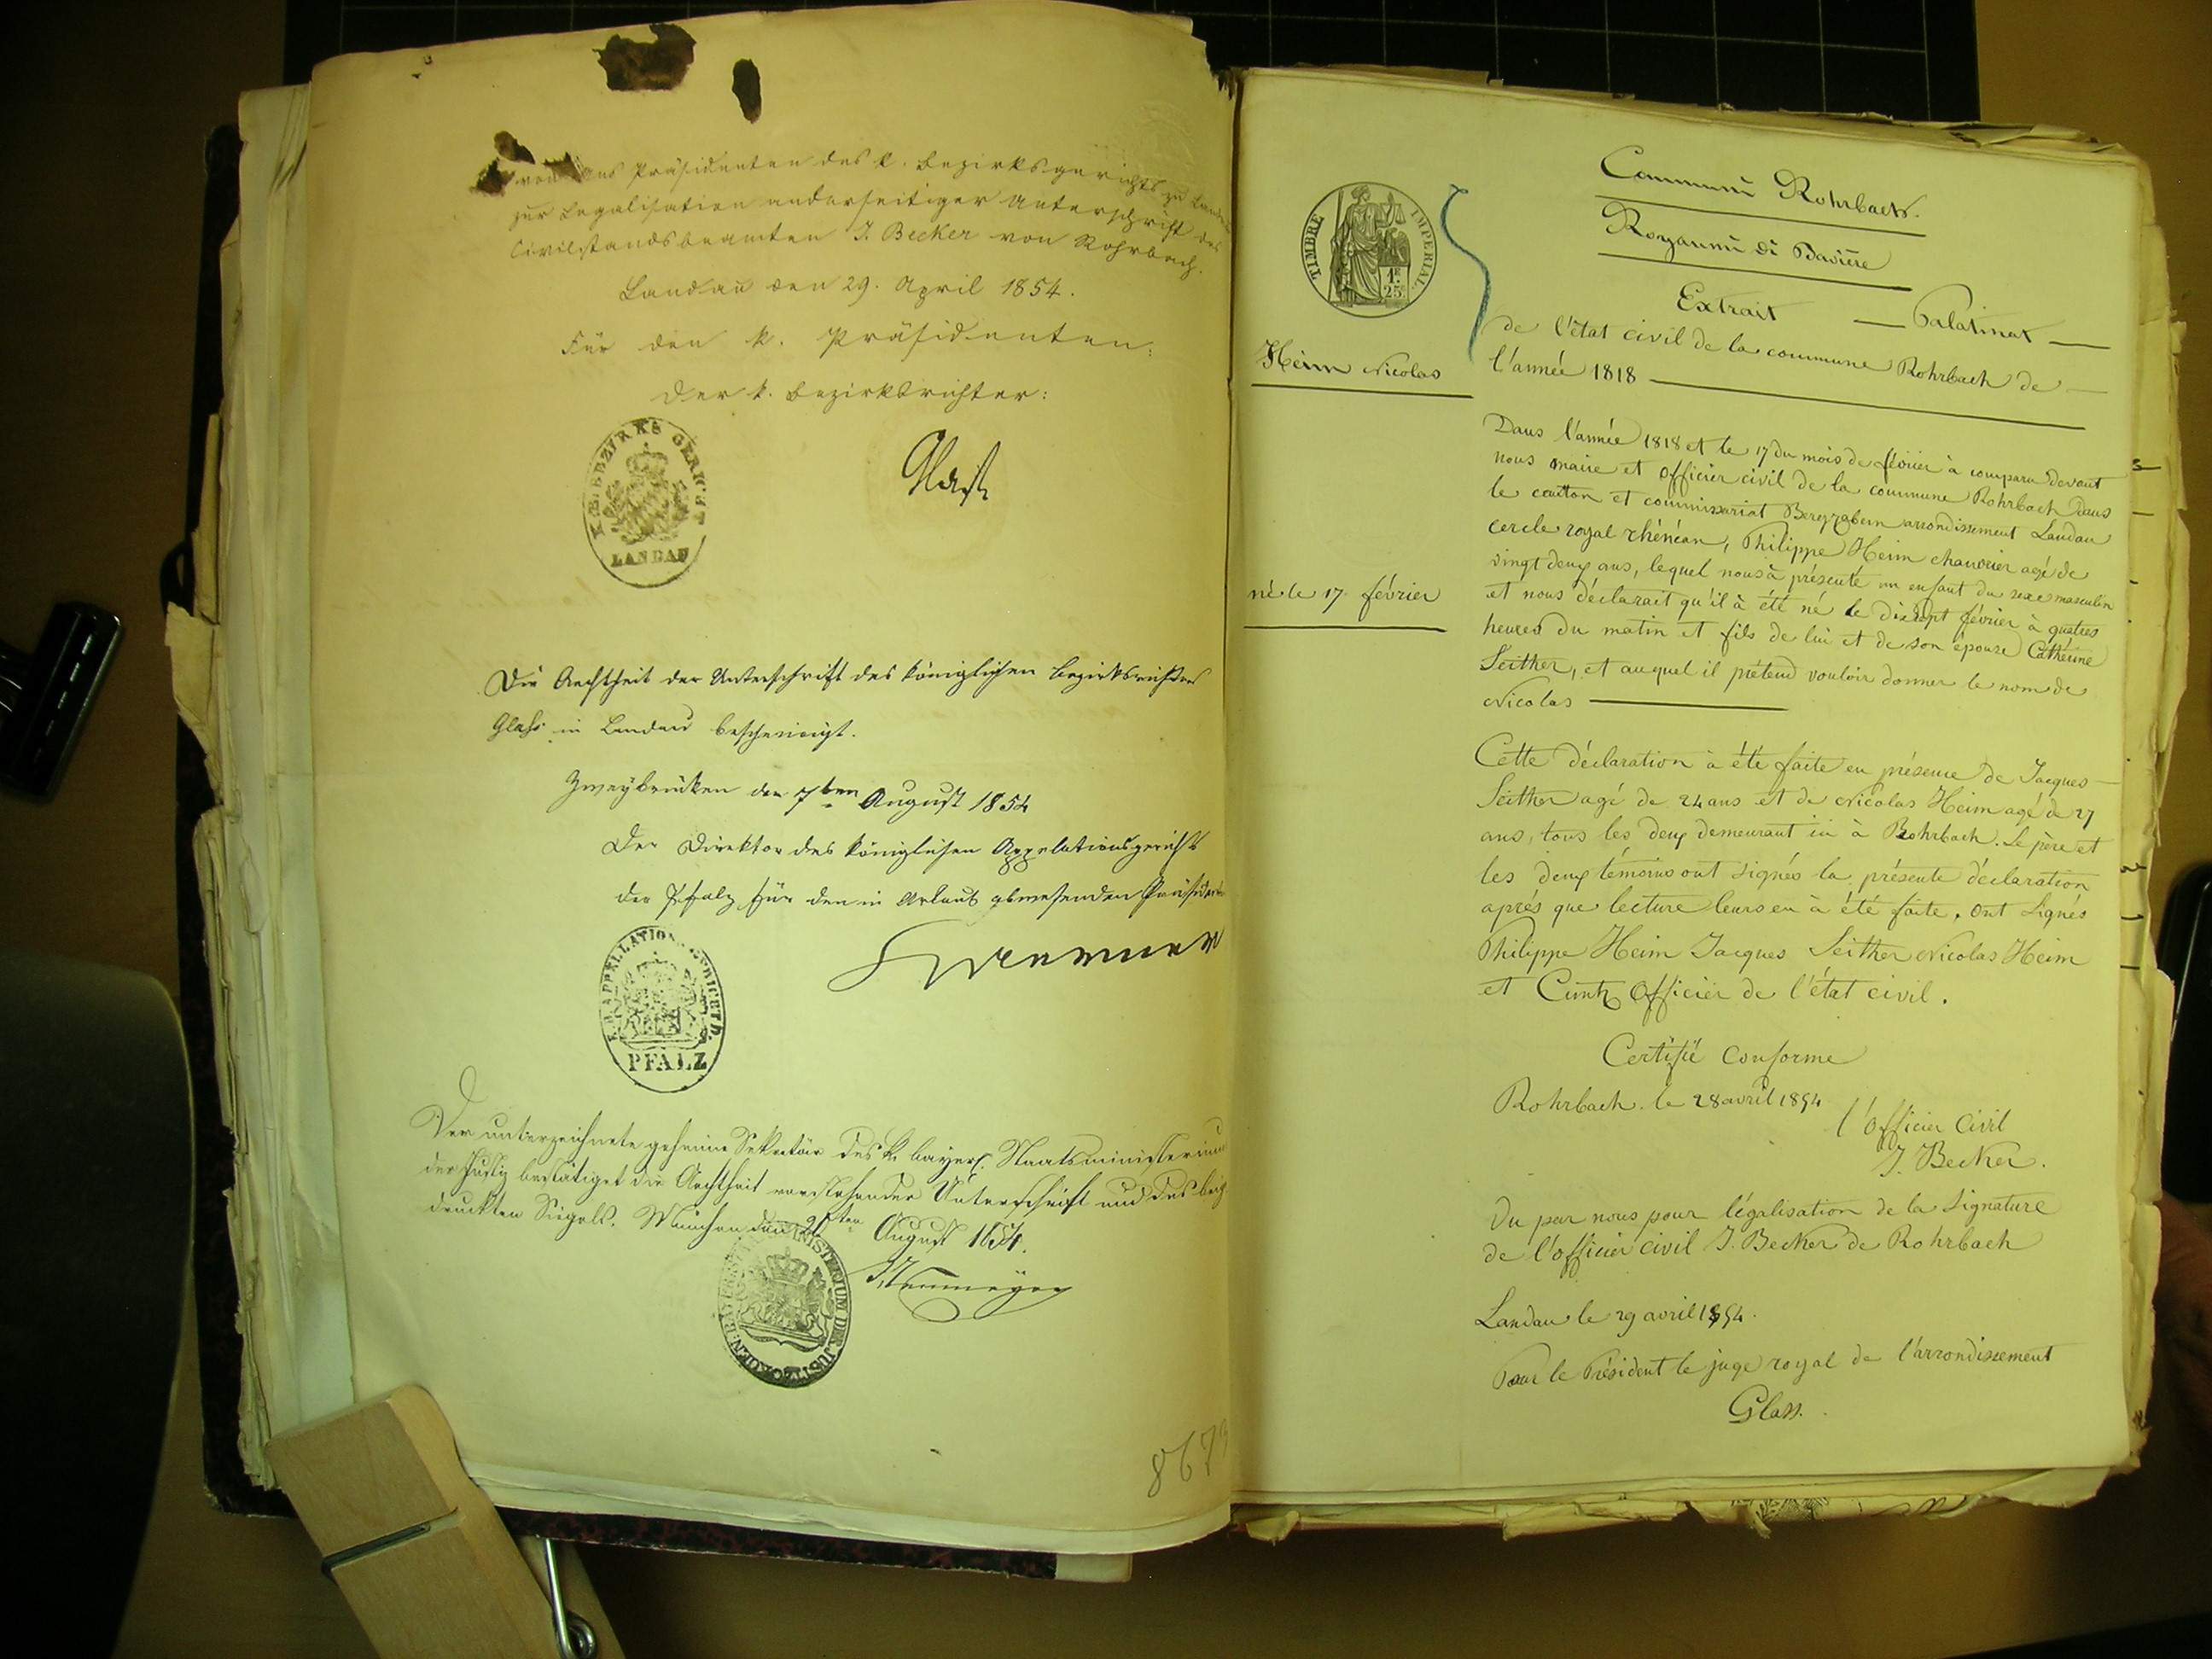 von uns Präsidenten des k. Bezirksgerichts zu Landau
zur Legalisation anderseitiger Unterschrift des
Civilstandsbeamten J. Becker von Rohrbach.
Landau den 29. April 1854.
Für den k. Präsidenten:
Der k. Bezirksrichter:
Glass
K. B. BEZIRKS GERICHT
LANDAU
Die Aechtheit der Unterschrift des königlichen Bezirksrichters
Glass in Landau bescheinigt.
Zweybrücken den 7ten August 1854
Der Direktor des königlichen Appellationsgerichts
der Pfalz für den in Urlaub abwesenden Präsidenten
K. B. APPELLATIONSGERICHT D.
PFALZ
Der unterzeichnete geheime Sekretär des k. bayer. Staatsministeriums
der Justiz bestätiget die Aechtheit vorstehender Unterschrift und des beige
druckten Siegels. München den August 1854.
8673
Commune Rohrbach.
Royaume de Bavière
TIMBRE IMPERIAL
1F
25C
Extrait — Palatinat —
de l'état civil de la commune Rohrbach de —
Heim Nicolas
l'année 1818 —
Dans l'année 1818 et le 17 du mois de février à comparu devant
nous maire et officier civil de la commune Rohrbach dans
le canton et commissariat Bergzabern arrondissement Landau
cercle royal rhénéan, Philippe Heim chanvrier agé de
vingt deux ans, lequel nous à présenté un enfant du sexe masculin
né le 17 février
et nous déclarait qu'il à été né le dixsept février à quatres
heures du matin et fils de lui et de son épouse Cathérine
Seither, et auquel il prétend vouloir donner le nom de
Nicolas —
Cette déclaration à été faite en présence de Jacques —
Seither agé de 24 ans et de Nicolas Heim agé de 27
ans, tous les deux demeurant ici à Rohrbach. Le père et
les deux témoins ont signés la présente déclaration
aprés que lecture leurs en à été faite. Ont Signés
Philippe Heim Jacques Seither Nicolas Heim
et Cuntz Officier de l'état civil.
Certifié conforme
Rohrbach. le 28 avril 1854
l'Officier Civil
J. Becker.
Vu par nous pour légalisation de la Signature
de l'officier civil J. Becker de Rohrbach
Landau le 29 avril 1854.
Pour le Président le juge royal de l'arrondissement
Glass.